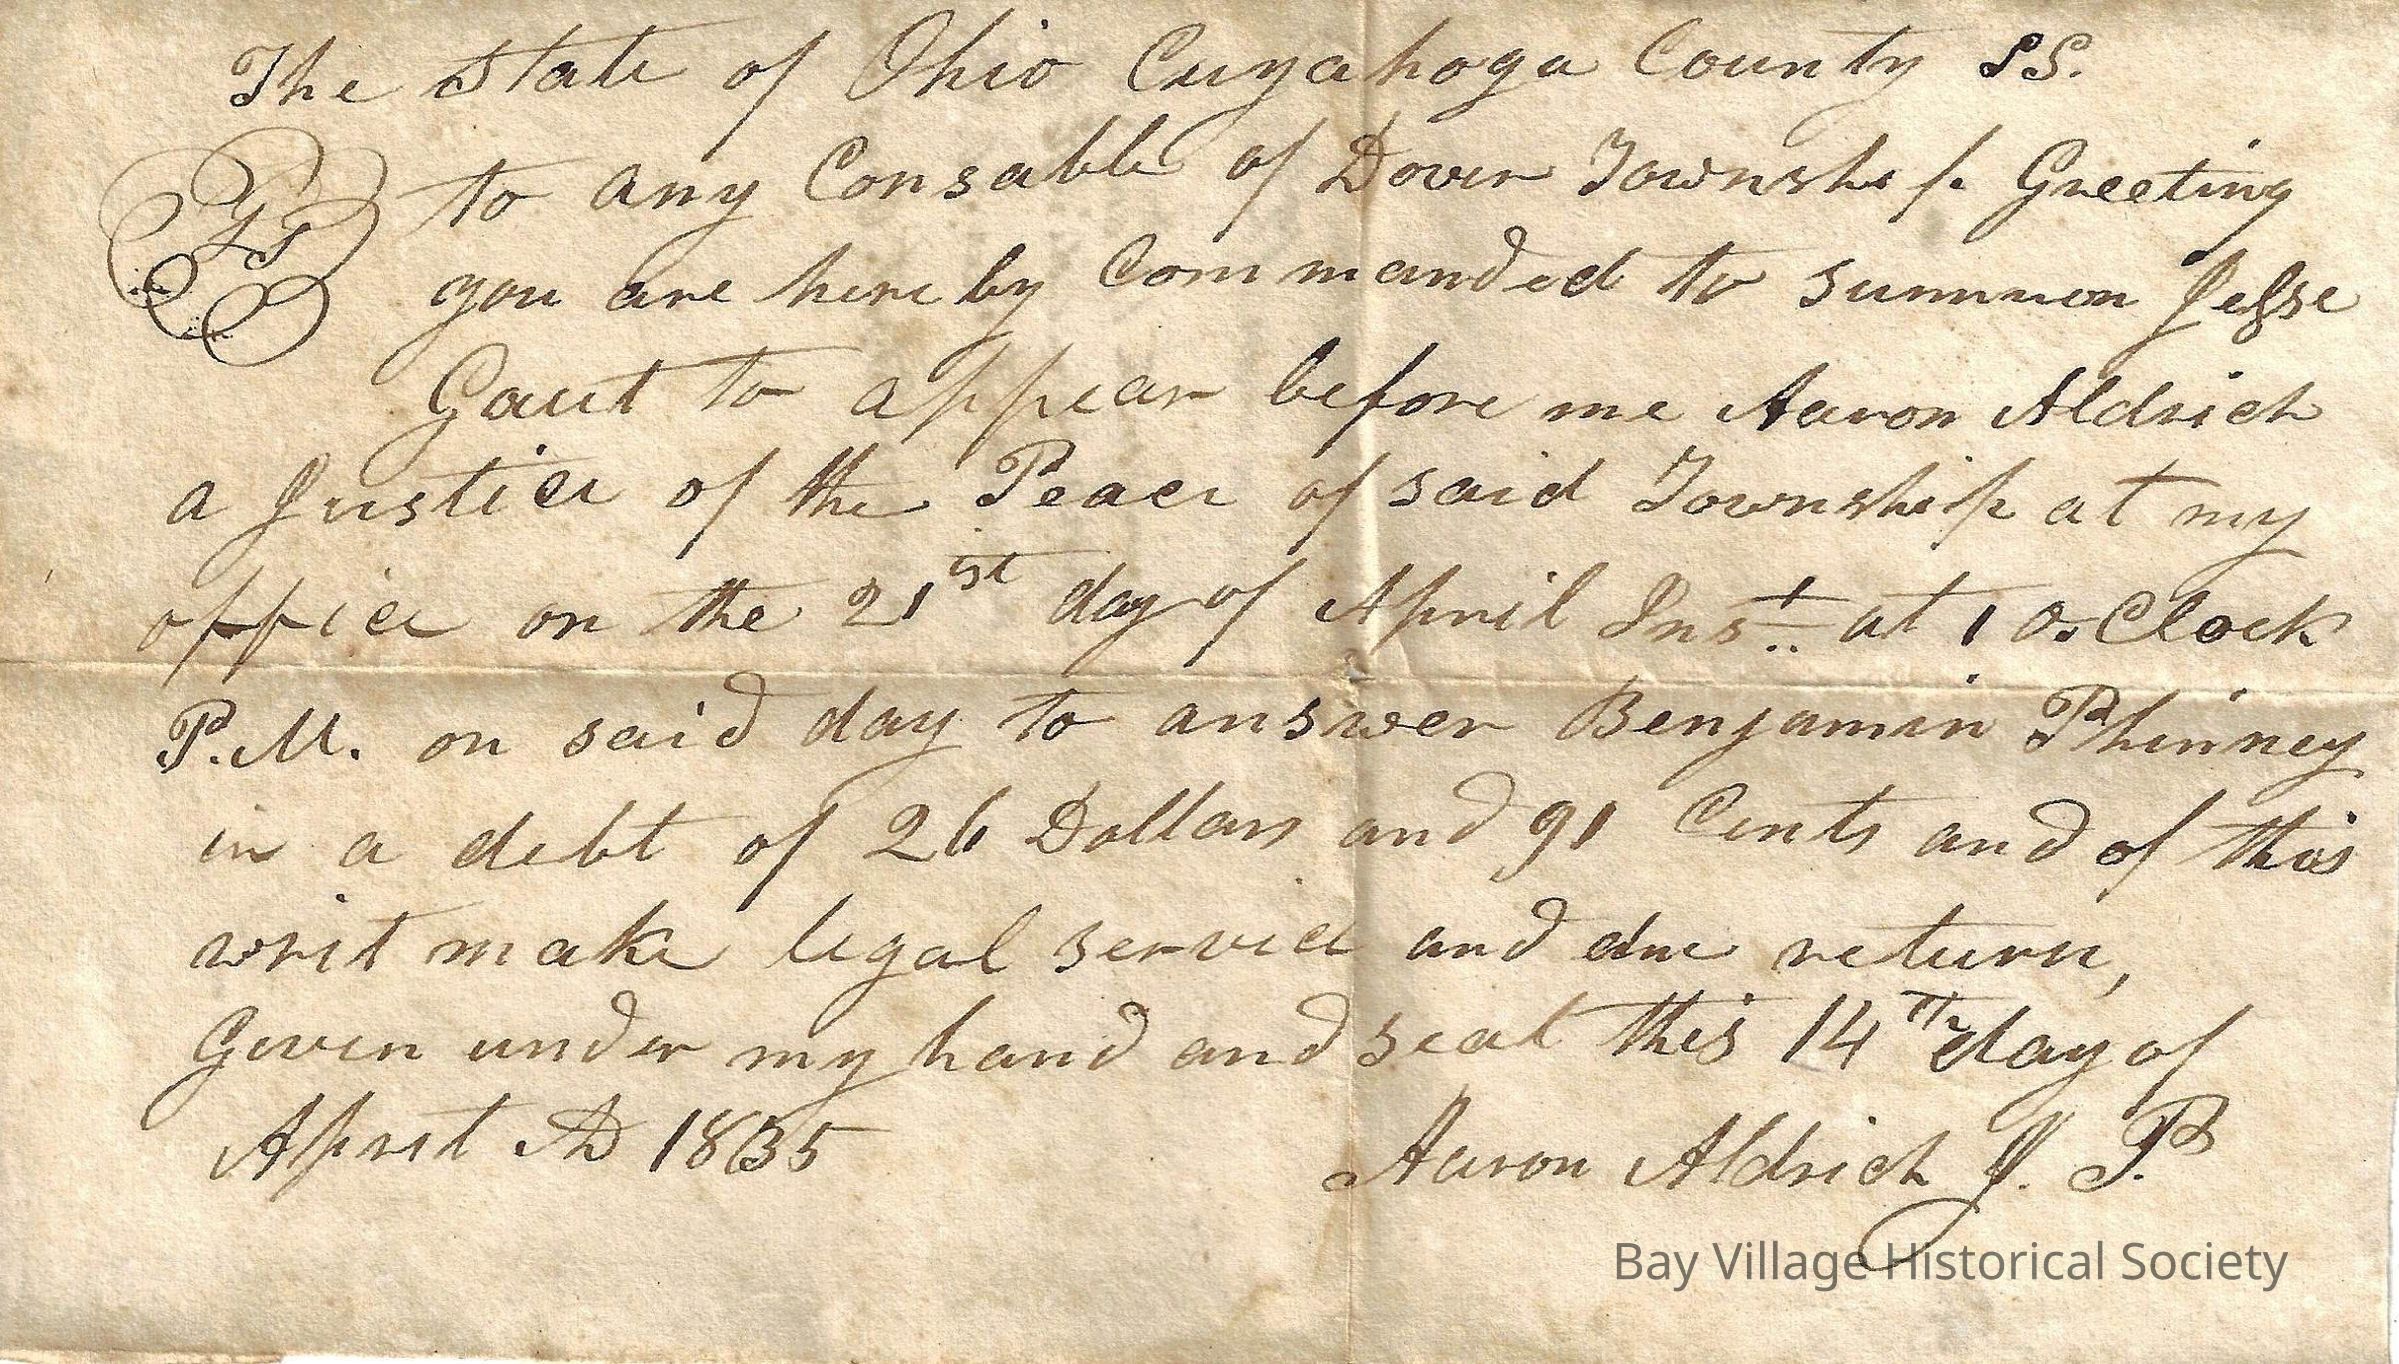 The State of Ohio Cuyahoga County SS.
to any Consable of Dover Township Greeting
you are hereby Commanded to summon Jesse
Gaut to appear before me Aaron Aldrich
a Justice of the Peace of said Township at my
office on the 21st day of April Inst at 1 O. Clock
P.M. on said day to answer Benjamin Phinney
in a debt of 26 Dollars and 91 Cents and of this
writ make legal service and due return,
Given under my hand and seal this 14th day of
April AD 1835
Aaron Aldrich J. P.
Bay Village Historical Society